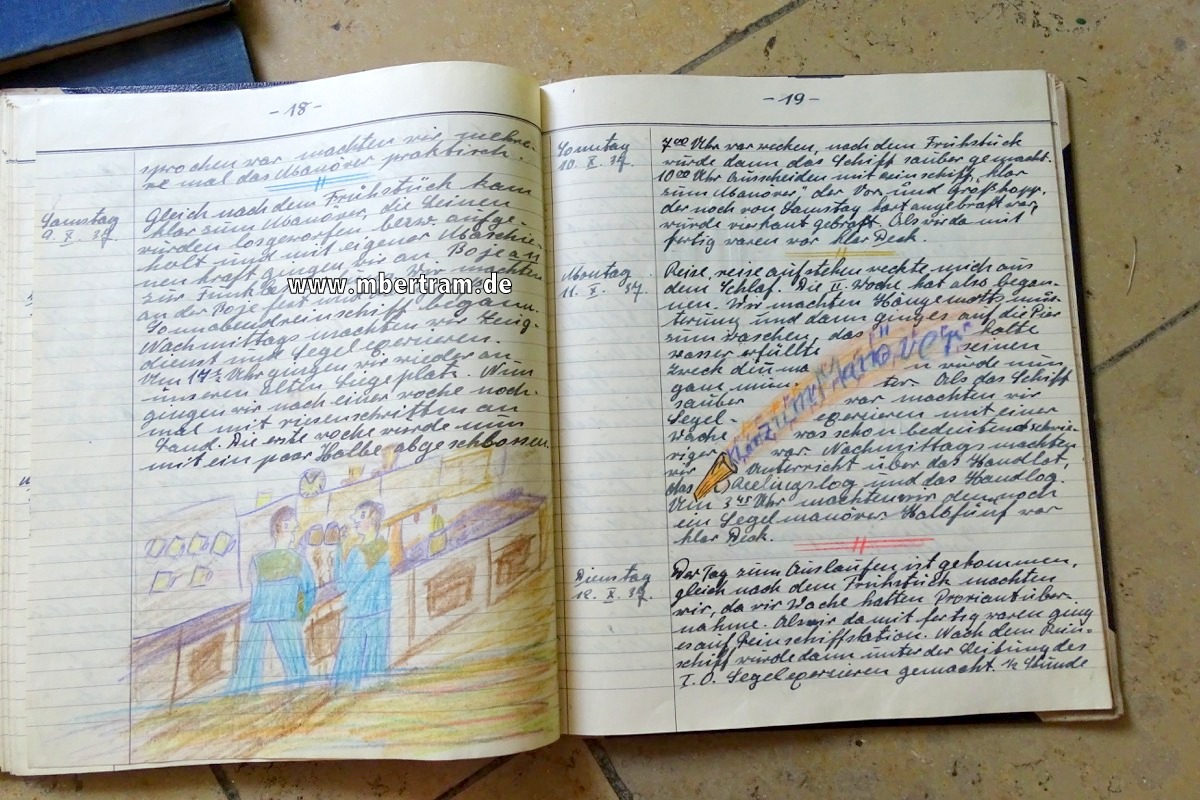 - 18 -
sprochen war machten wir mehre-
re mal das Manöver praktisch.
Samstag
9. X. 37.
Gleich nach dem Frühstück kam
klar zum Manöver, die Leinen
wurden losgeworfen bezw. aufge-
holt und mit eigener Maschie-
nenkraft gingen wir an Boje an
zur Funk Wir machten
an der Boje fest und
Sonnabendreinschiff begann.
Nachmittags machten wir Zeug-
dienst und Segelexerzieren.
Um 17 Uhr gingen wir wieder an
unseren alten Liegeplatz. Nun
gingen wir nach einer Woche noch-
mal mit riesenschritten an
Land. Die erste Woche wurde nun
mit ein paar Halbe abgeschlossen.
www.mbertram.de
- 19 -
Sonntag
10. X. 37.
7 00 Uhr war wecken, nach dem Frühstück
wurde dann das Schiff sauber gemacht.
10 00 Uhr Ausscheiden mit reinschiff, klar
zum Manöver" der Vor und Großtopp,
der noch von Samstag hart angebraßt war,
wurde vierkant gebraßt. Als wir da mit
fertig waren war klar Deck.
Montag
11. X. 37.
Reise, reise aufstehen weckte mich aus
dem Schlaf. Die II. Woche hat also begon-
nen. Wir machten Hängematts mus-
terung und dann ginges auf die Pier
zum waschen, das kalte
wasser erfüllte seinen
zweck wurde nun
ganz Als das Schiff
sauber war machten wir
Segel - exerzieren mit einer
Wache was schon bedeutend schwie-
riger war. Nachmittags machten
wir Unterricht über das Handlot,
das Reelingslog und das Handlog.
Um 3 45 Uhr machten wir dennoch
ein Segelmanöver Halbfünf war
klar Deck.
Klar zum Manöver
Dienstag
12. X. 37.
Der Tag zum Auslaufen ist gekommen,
gleich nach dem Frühstück machten
wir, da wir Wache hatten Proviantüber-
nahme. Als wir da mit fertig waren ging
es auf Reinschiffstation. Nach dem Rein-
schiff wurde dann unter der Leitung des
I. O. Segelexerzieren gemacht. 1/2 Stunde